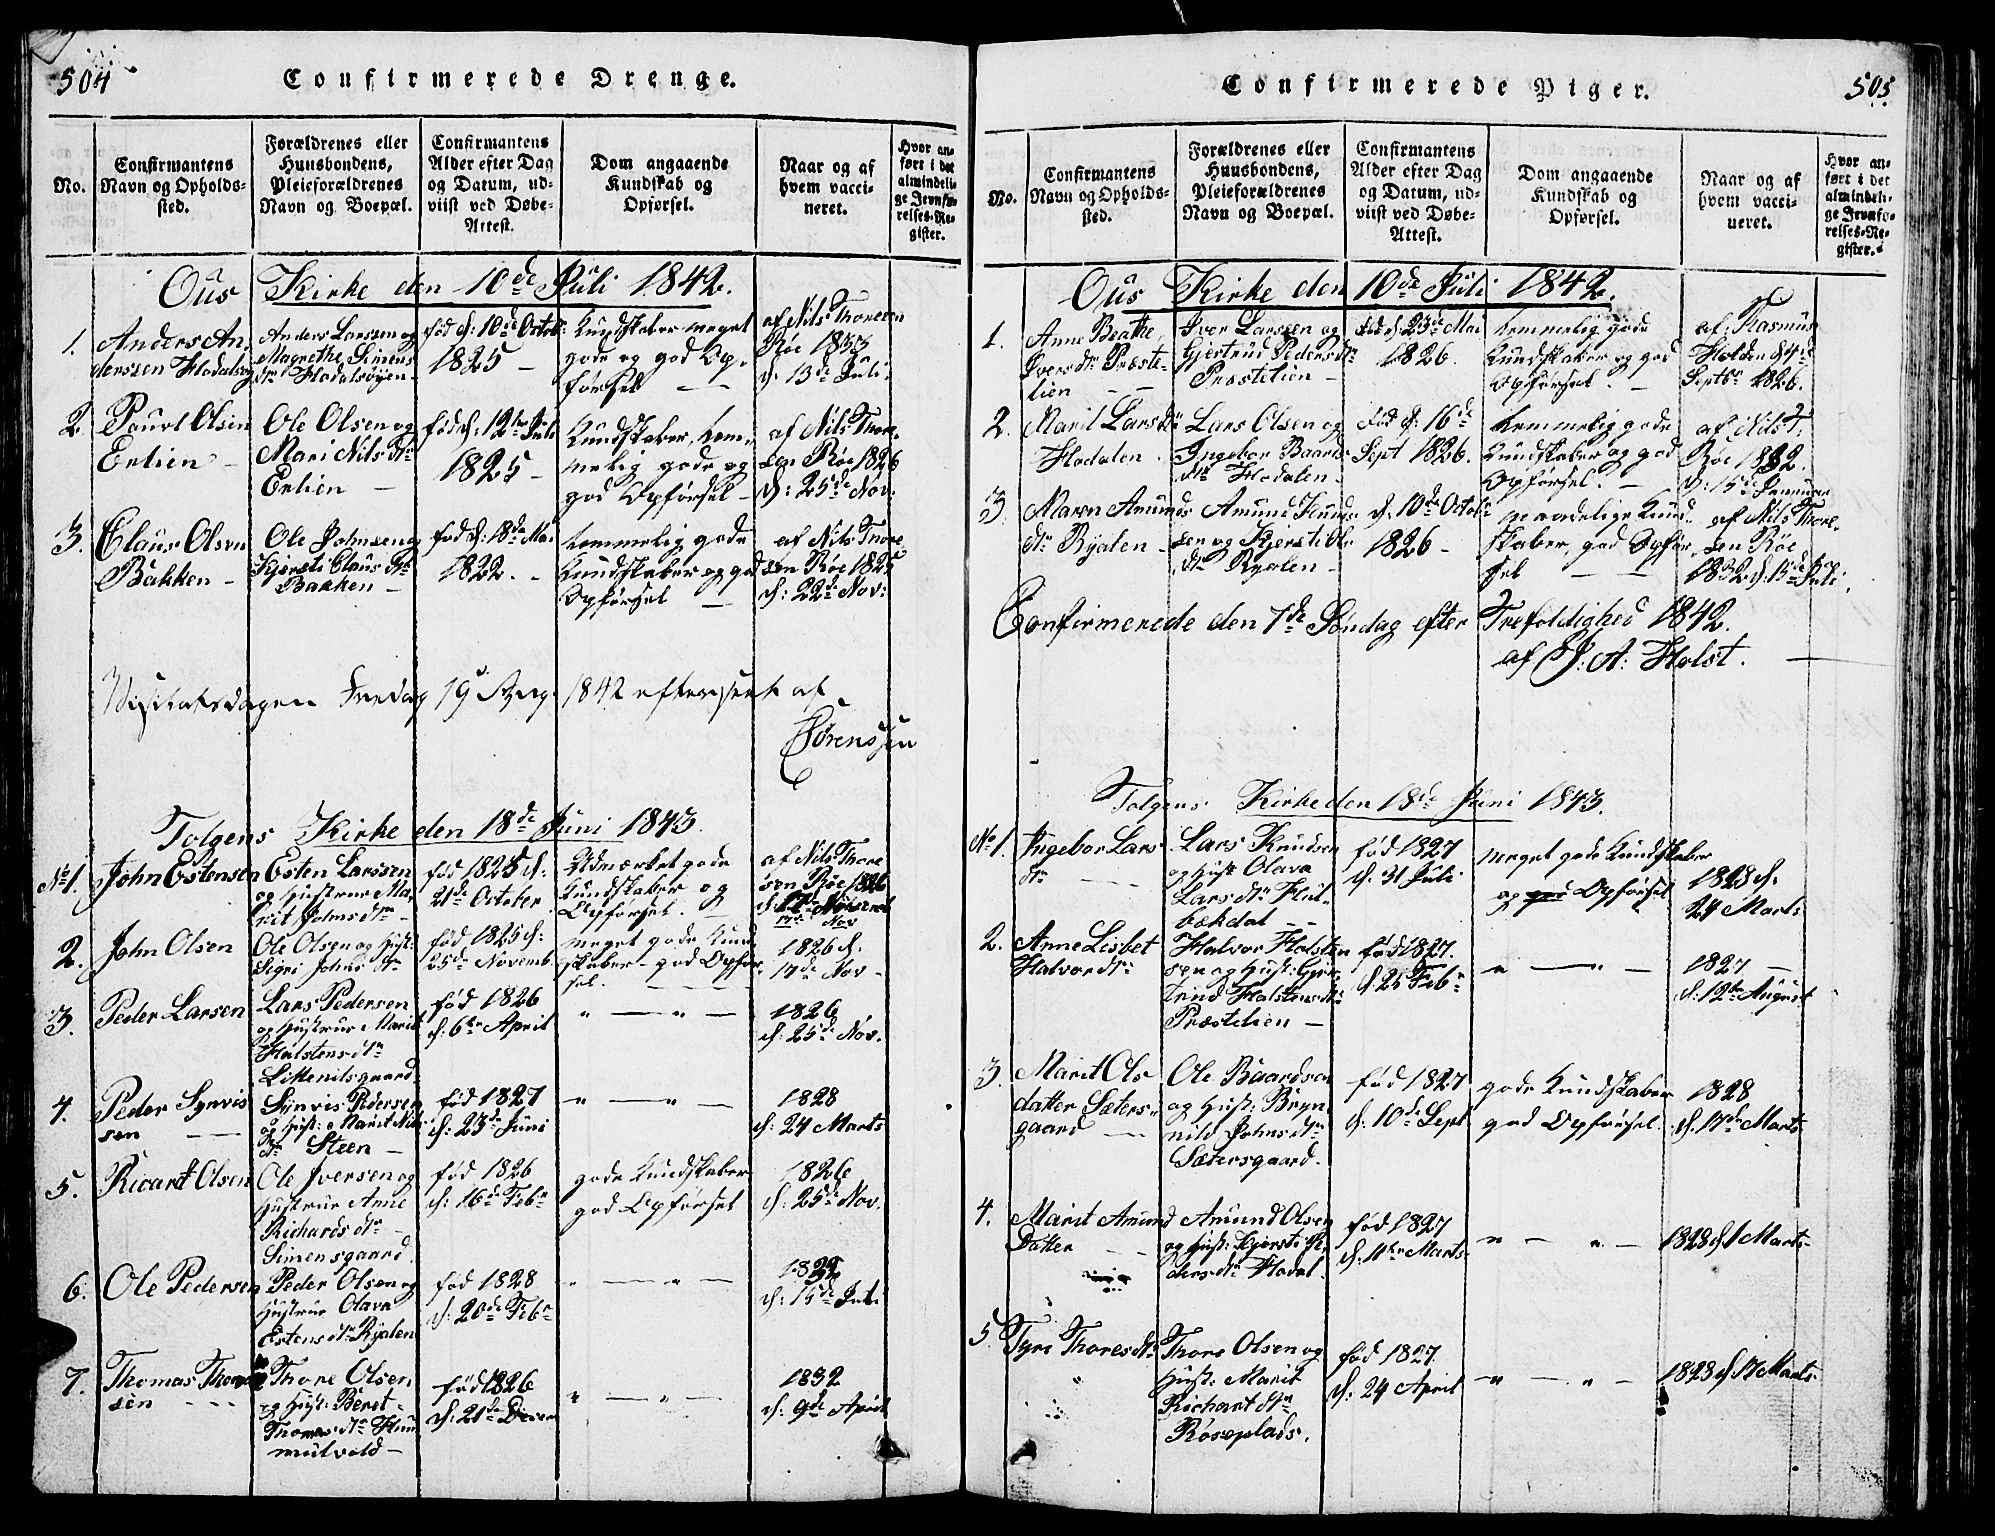 504
Confirmerede Drenge.
No.
Confirmantens
Navn og Opholds-
sted.
Forældrenes eller
Huusbondens,
Pleieforældrenes
Navn og Boepæl.
Confirmantens
Alder efter Dag
og Datum, ud-
viist ved Døbe-
Attest.
Dom angaaende
Kundskab og
Opførsel.
Naar og af
hvem vacci-
neret.
Hvor an-
ført i det
almindeli-
ge Jevnfø-
relses-Re-
gister.
Ous Kirke den 10de Juli 1842.
1.
Anders An
derssen Hodalsøy
Anders Larssen og
Magrethe
dtr Hodalsøyen
fød d: 10de Octob:
1825 –
Kundskaber meget
gode og god Op-
førsel – –
af Nils Thoresen
Røe 1833
d: 13de Juli.
2.
Pouvl Olsen
Erlien –
Ole Olsen og
Mari Nils dtr
Erlien –
fød d: 12te Juli
1825 –
Kundskaber tem-
melig gode og
god Opførsel –
af Nils Thore-
sen Røe 1826
d: 25de Nov:
3.
Claus Olsen
Bakken –
Ole Johnsen og
Kjersti Claus dtr
Bakken –
fød d: 18de Mai
1822. –
temmelig gode
Kundskaber og god
Opførsel –
af Nils Thore
sen Røe 1825
d: 22de Nov:
Visitatsdagen Fredag 19 Aug. 1842 efterseet af
Sørenssen
Tolgens Kirke den 18de Juni 1843.
No 1.
John Estensen
Esten Larssen
og Hustrue Ma-
rit Johns dtr –
fød 1825 d:
21de October
Udmærket gode
Kundskaber og
Opførsel. –
af Nils Thore
sen Røe 1826
17de Nov
2.
John Olsen
Ole Olsen og Hust:
Sigri Johns dtr
fød 1825 d:
25de Novemb
meget gode Kund
skaber – god Opfør-
sel.
1826 d.
17de Nov –
3.
Peder Larsen
Lars Pedersen
og Hustrue Marit
Halstens dtr
Littenilsgaard.
fød 1826
d: 6te April
" — " —
1826
d: 25de Nov.
4.
Peder Synvis
sen — —
Synvis Pedersen
og Hust: Marit Nils
dtr Steen –
fød 1827
d: 23de Juni
" — " —
1828
d: 24 Marts
5.
Ricart Olsen
Ole Iversen og
Hustrue Anne
Richards dtr –
Simensgaard.
fød 1826
d: 16de Febr
gode Kundskaber
god Opførsel
1826
d: 25de Nov.
6.
Ole Pedersen
Peder Olsen og
Hustrue Olava
Estens dtr Ryalen
fød 1828
d: 20de Febr
" — " —
d: 15de Juli
7.
Thomas Thore
sen – – –
Thore Olsen
og Hust: Beret –
Thomas dtr Hum
mulvold –
fød 1826
d: 21de Decem
" — " —
1832
d: 9de April
505.
Confirmerede Piger.
No.
Confirmantens
Navn og Opholds-
sted.
Forældrenes eller
Huusbondens,
Pleieforældrenes
Navn og Boepæl.
Confirmantens
Alder efter Dag
og Datum, ud-
viist ved Døbe-
Attest.
Dom angaaende
Kundskab og
Opførsel.
Naar og af
hvem vacci-
neret.
Hvor an-
ført i det
almindeli-
ge Jevnfø-
relses-Re-
gister.
Ous Kirke den 10de Juli 1842.
1.
Anne Beathe
Ivers dtr Præste-
lien –
Iver Larssen og
Gjertrud Peders dtr
Præstelien –
Fød d: 23de Mai
1826.
temmelig gode
Kundskaber og god
Opførsel. –
af Rasmus
Holden d 4de
Septbr 1826.
2.
Marit Lars dtr
Hodalen.
Lars Olsen og
Ingebor Baards
dtr Hodalen –
Fød d: 16de
Sept 1826.
temmelig gode
Kundskaber og god
Opførsel. –
af Nils T.
Røe 1832.
d: 15de Januar
3.
Maren Amunds
dtr Ryalen –
Amund
sen og Kjersti Ols
dtr Ryalen –
d: 10de Octobr
1826 –
maadelige Kund-
skaber, god Opfør
sel — —
af Nils Thore-
sen Røe
1832 d. 15de Juli.
Confirmerede den 7de Søndag efter Trefoldighed 1842.
af P: A: Holst. –
Tolgens Kirke den 18de Juni 1843.
No 1.
Ingebor Lars
dtr – – –
Lars Knudsen
og Hust Olava
Lars dtr
bækdal – –
fød 1827
d. 31 Juli
meget gode Kundskaber
og Opførsel
1828 d.
24 Marts
2.
Anne Lisbet
Halvor dtr
Halvor Halsten
sen og Hust: Gjer
trud Halstens dtr
Præstelien –
fød 1827.
d. 25 Febr
" — " —
1827 –
d: 12te August
3.
Marit Ols
datter Sæters-
gaard –
Ole Baardsen
og Hust: Bryn
nild Johns dtr
Sætersgaard.
fød 1827
d: 10de Sept
gode Kundskaber
god Opførsel.
1828
d. 17de Marts
4.
Marit Amund
Datter – –
Amund Olsen
og Hust: Kjersti Pe
ders dtr Hodal.
fød 1827
d: 11te Marts
" — " —
1828 d 1 Marts
5
Tyri Thores dtr
"
Thore Olsen og
Hust: Marit
Richart dtr
Røseplads.
fød 1827.
d: 24 April
" — " —
1828 d 17 Marts